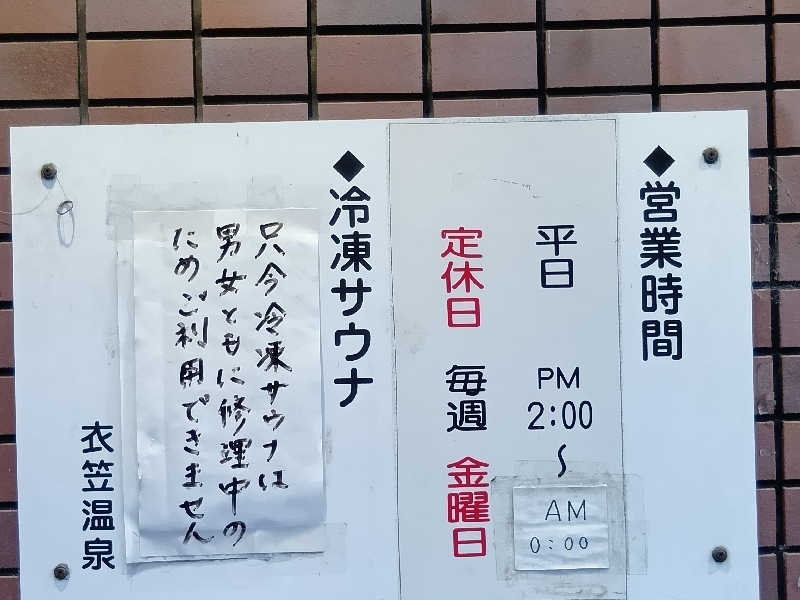 ◆営業時間
平日 PM 2:00 〜 AM 0:00
定休日 毎週 金曜日
◆冷凍サウナ
只今冷凍サウナは
男女ともに修理中の
ためご利用できません
衣笠温泉